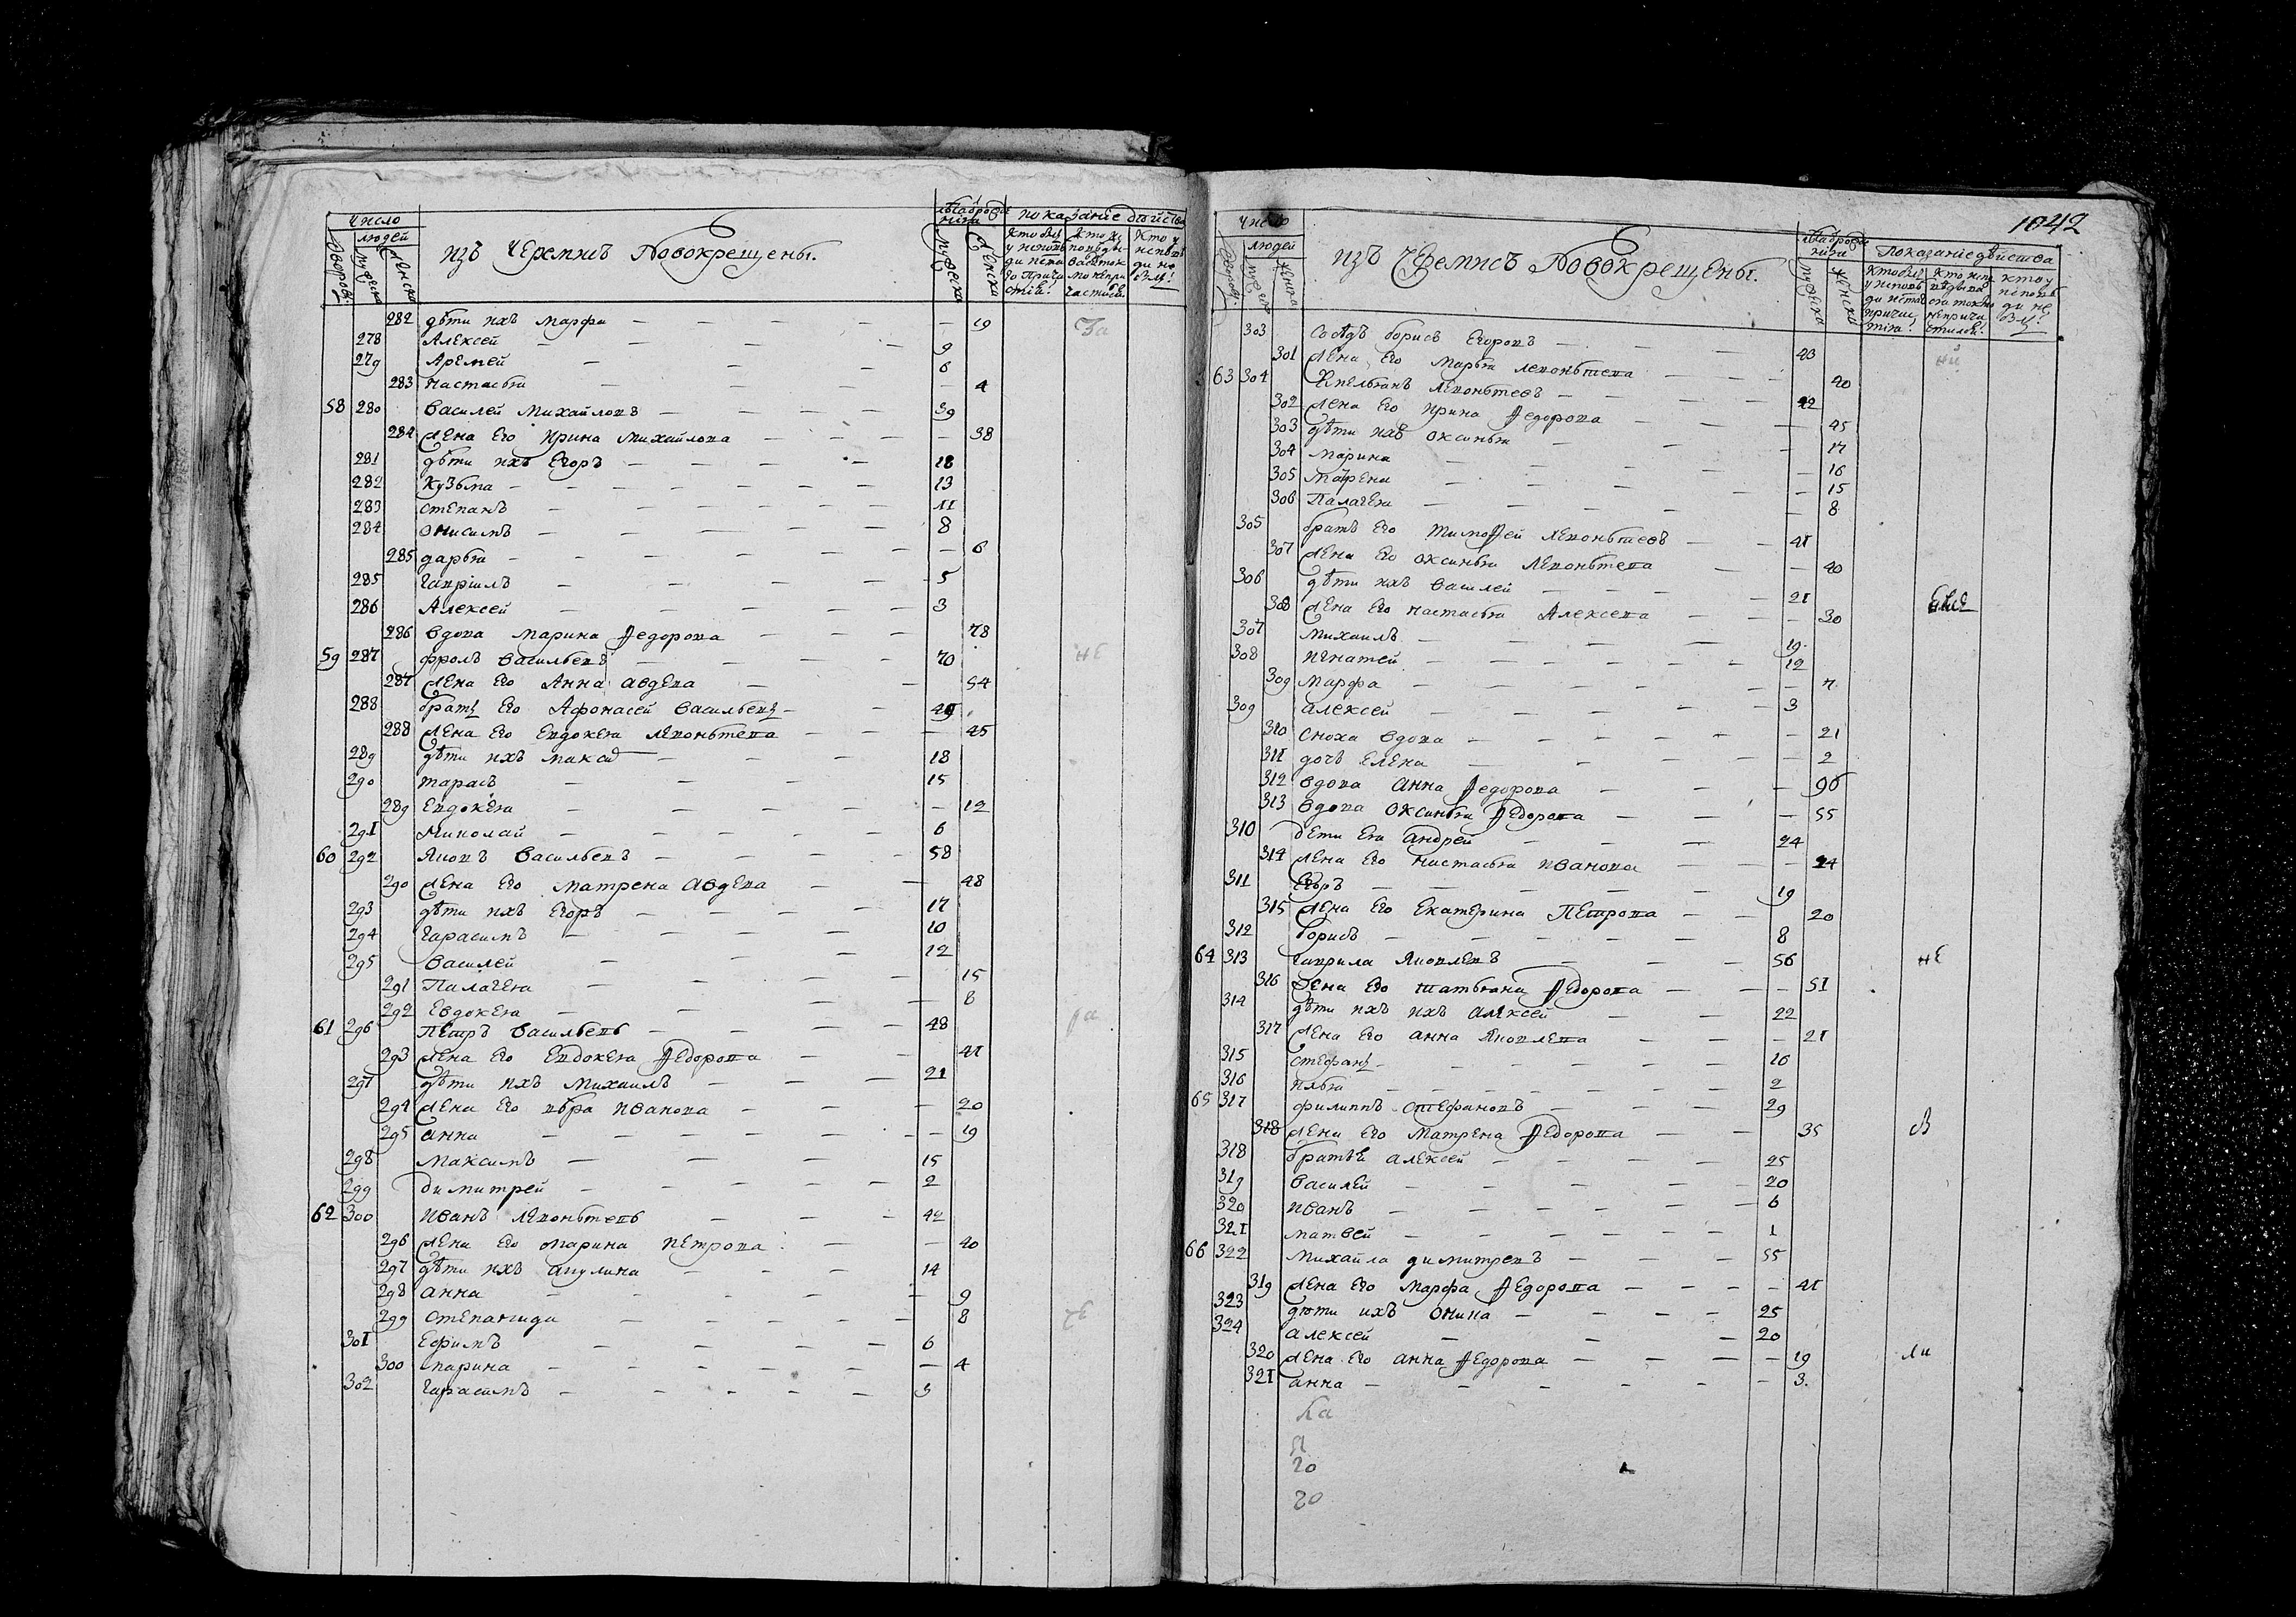 число
людей
дворовъ
мужеска
женска
изъ Черемисъ Новокрещены.
мужеска
женска
показание действа
282 дѣти ихъ марфа — 19
278 Алексей — 9
279 Аремей — 6
283 настасья — 4
58 280 Василей Михайловъ — 39
284 жена его ирина михайлова — 38
281 дѣти ихъ Егоръ — 18
282 кузьма — 13
283 степанъ — 11
284 онисимъ — 8
285 дарья — 6
285 гаврiилъ — 5
286 Алексей — 3
286 вдова марина Ѳедорова — 78
59 287 фролъ васильевъ — 70 не
287 жена его Анна авдева — 54
288 братъ его Афонасей васильевъ —
288 жена его евдокея левоньтева — 45
289 дѣти ихъ — 18
290 тарасъ — 15
289 Евдокея — 12
291 Миколай — 6
60 292 Яковъ васильевъ — 58
290 жена его матрена авдева — 48
293 дѣти ихъ Егоръ — 17
294 гарасимъ — 10
295 василей — 12
291 Палагея — 15
292 Евдокея — 8
61 296 петръ васильевъ — 48 ра
293 жена его евдокея Ѳедорова — 41
297 дѣти ихъ михаилъ — 21
294 жена его иванова — 20
295 анна — 19
298 максимъ — 15
299 димитрей — 2
62 300 иванъ левоньтевъ — 42
296 жена его марина петрова — 40
297 дѣти ихъ акулина — 14
298 анна — 9
299 степанида — 8
301 ефимъ — 6
300 марина — 4
302 гарасимъ — 3
1042
число
людей
изъ Черемисъ Новокрещены.
Показание действа
303 Сосѣдъ борисъ егоровъ — 43
301 жена его марья левоньтева — 40
63 304 левоньтеевъ — 42
302 жена его ирина Ѳедорова — 45
303 дѣти ихъ оксинья — 17
304 марина — 16
305 — 15
306 Палагея — 8
305 братъ его тимоѲей левоньтеевъ — 41
307 жена его оксинья левоньтева — 40
306 дѣти ихъ василей — 21
308 жена его настасья Алексева — 30
307 михаилъ — 19
308 игнатей — 12
309 марфа — 7
309 алексей — 3
310 сноха вдова — 21
311 дочь Елена — 2
312 вдова анна Ѳедорова — 96
313 вдова оксинья Ѳедорова — 55
310 дети ея андрей — 24
314 жена его настасья иванова — 24
311 Егоръ — 19
315 жена его Екатерина Петрова — 20
312 борисъ — 8
64 313 гаврила яковлевъ — 56 не
316 жена его татьяна Ѳедорова — 51
314 дѣти ихъ ихъ алексей — 22
317 жена его анна яковлева — 21
315 стефанъ — 16
316 илья — 2
65 317 филиппъ стефановъ — 29
318 жена его матрена Ѳедорова — 35
318 братья алексей — 25
319 василей — 20
320 иванъ — 6
321 матвей — 1
66 322 михайла димитревъ — 55
319 жена его марфа Ѳедорова — 41
323 дѣти ихъ — 25
324 алексей — 20
320 жена его анна Ѳедорова — 19 ли
321 анна — 3
ка
20
20